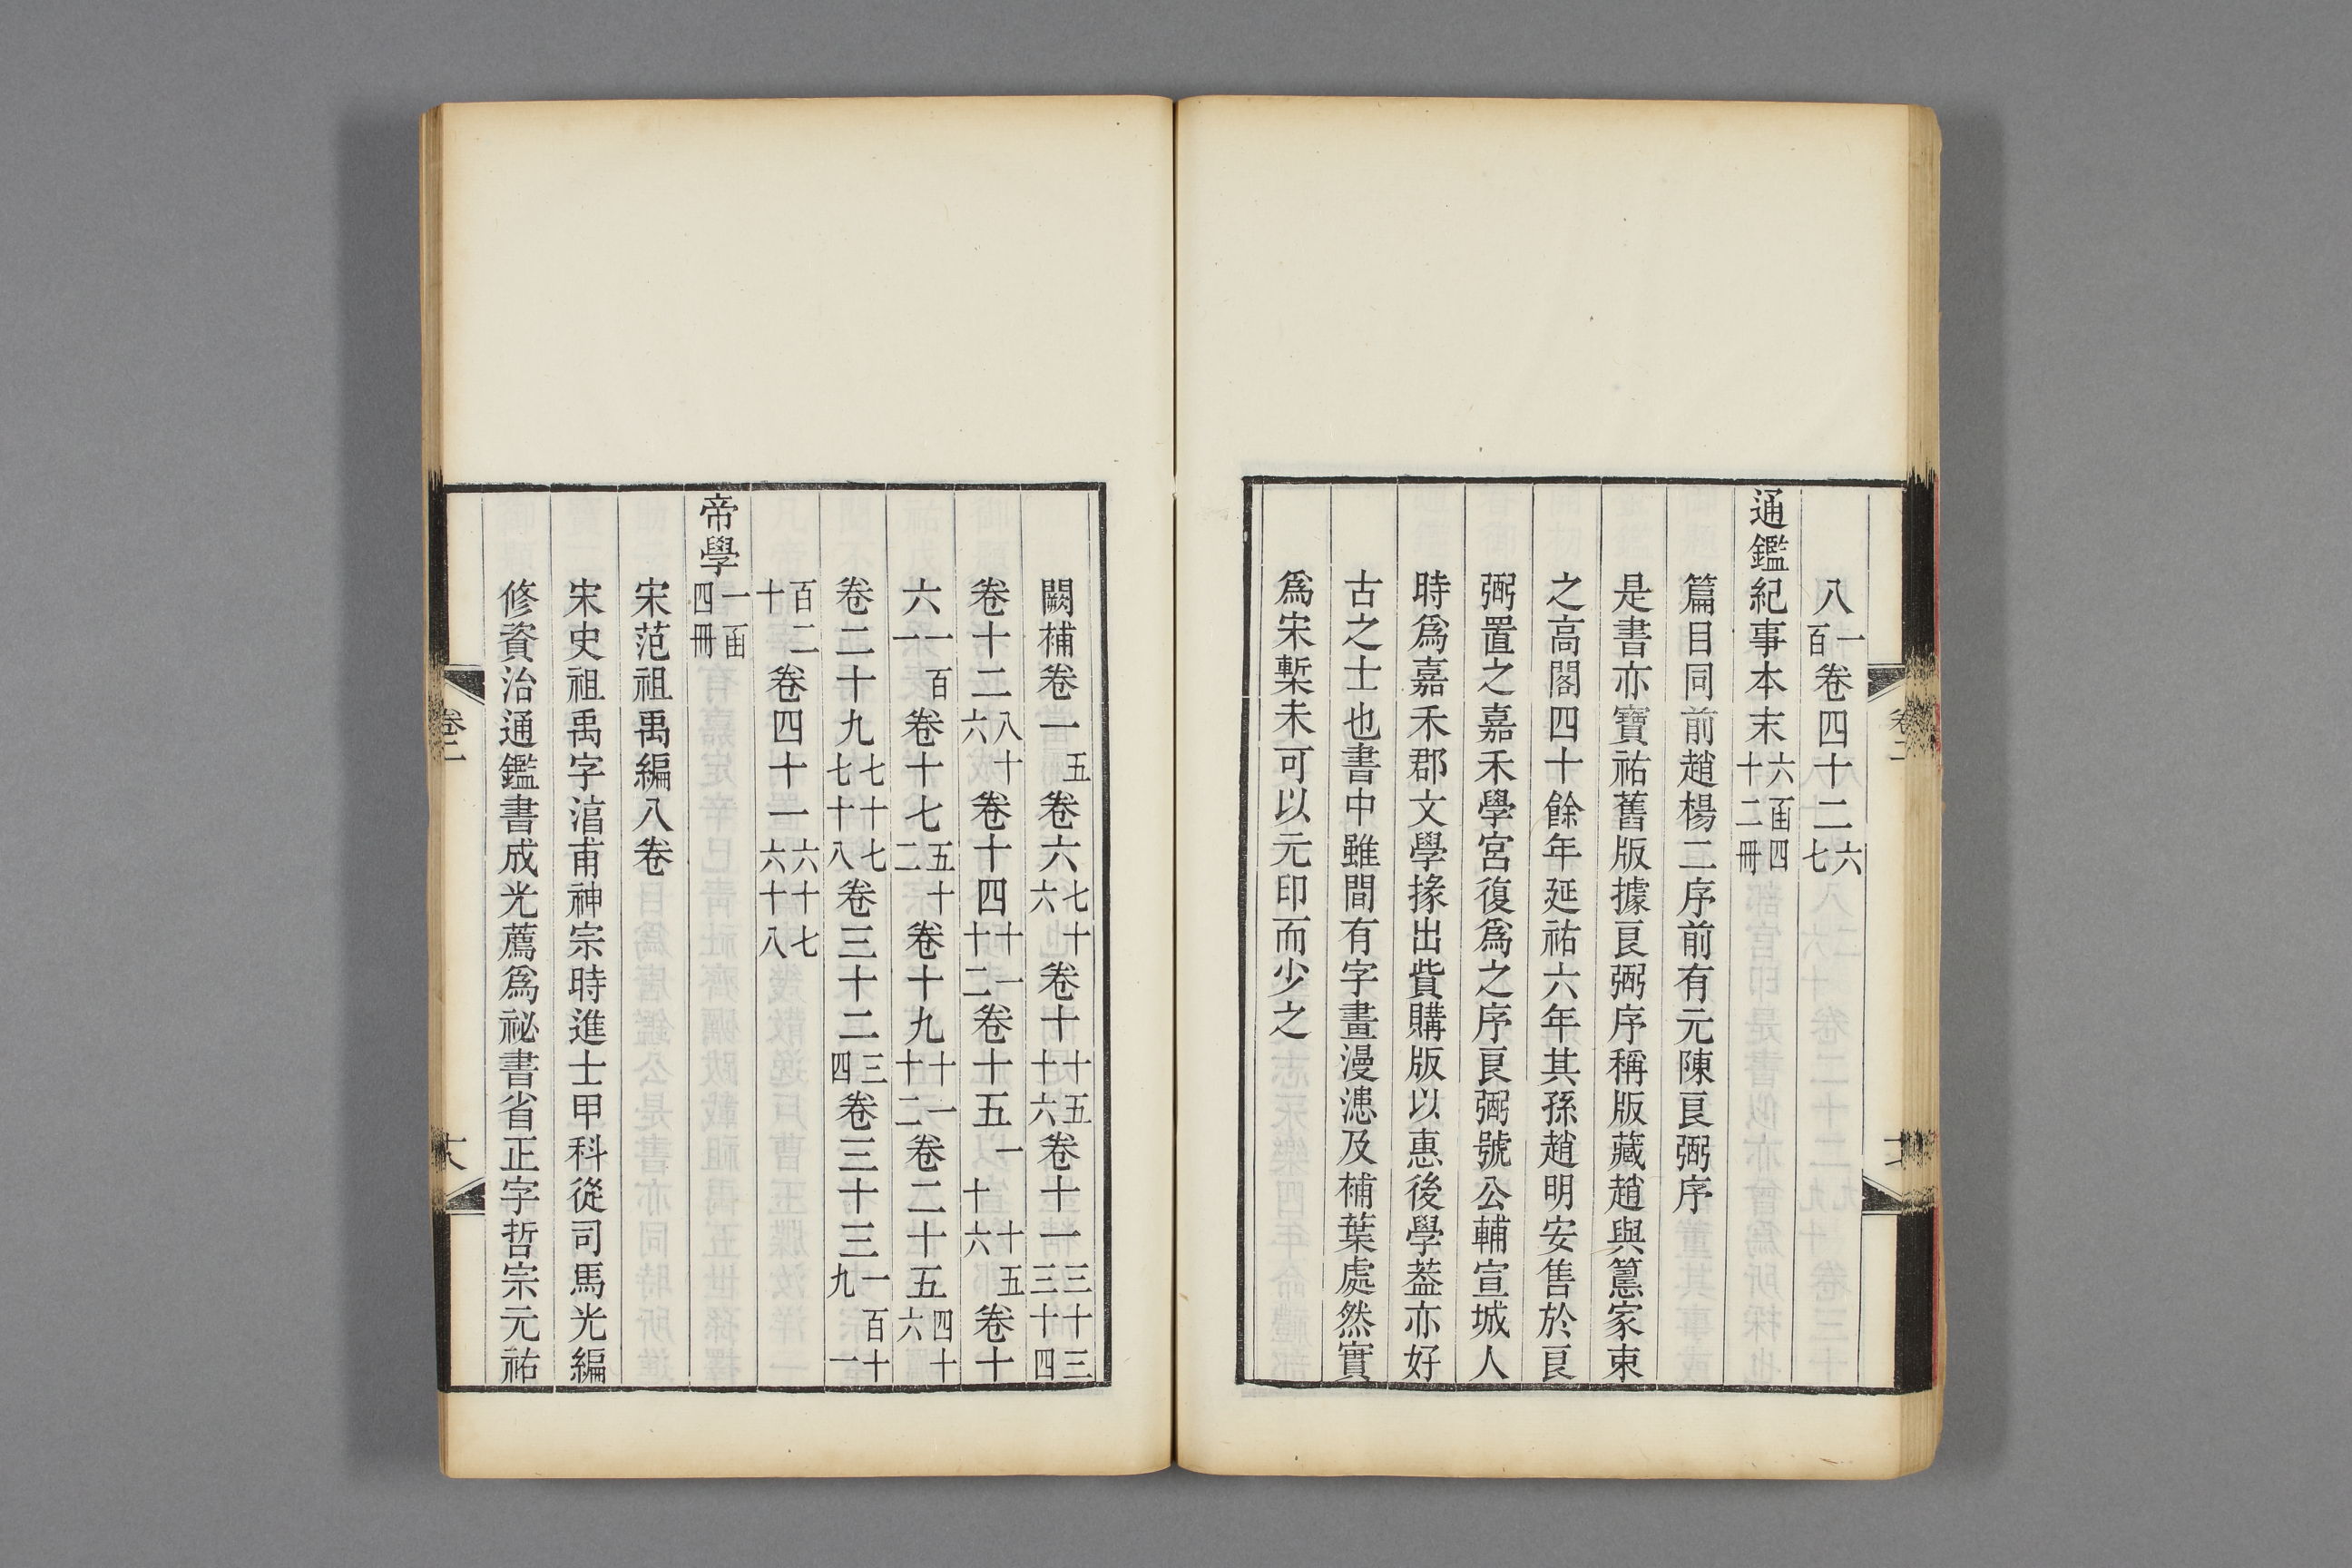 八一百卷四十二六七
通鑑紀事本末六函四十二冊
篇目同前趙楊二序前有元陳良弼序
是書亦寶祐舊版據良弼序稱版藏趙與𥲅家束
之高閣四十餘年延祐六年其孫趙明安售於良
弼置之嘉禾學宮復爲之序良弼號公輔宣城人
時爲嘉禾郡文學掾出貲購版以惠後學葢亦好
古之士也書中雖間有字畫漫漶及補葉處然實
爲宋槧未可以元印而少之
卷二
十七
闕補卷一五卷六七十六卷十十五十六卷十一三十三三十四
卷十二八十六卷十四十一十二卷十五一十五十六卷十
六一百一卷十七五十二卷十九十一十二卷二十五四十六
卷二十九七十七七十八卷三十二三四卷三十三一百十九一
百二十卷四十一六十七六十八
帝學一函四冊
宋范祖禹編八卷
宋史祖禹字淳甫神宗時進士甲科從司馬光編
修資治通鑑書成光薦爲祕書省正字哲宗元祐
卷二
十八